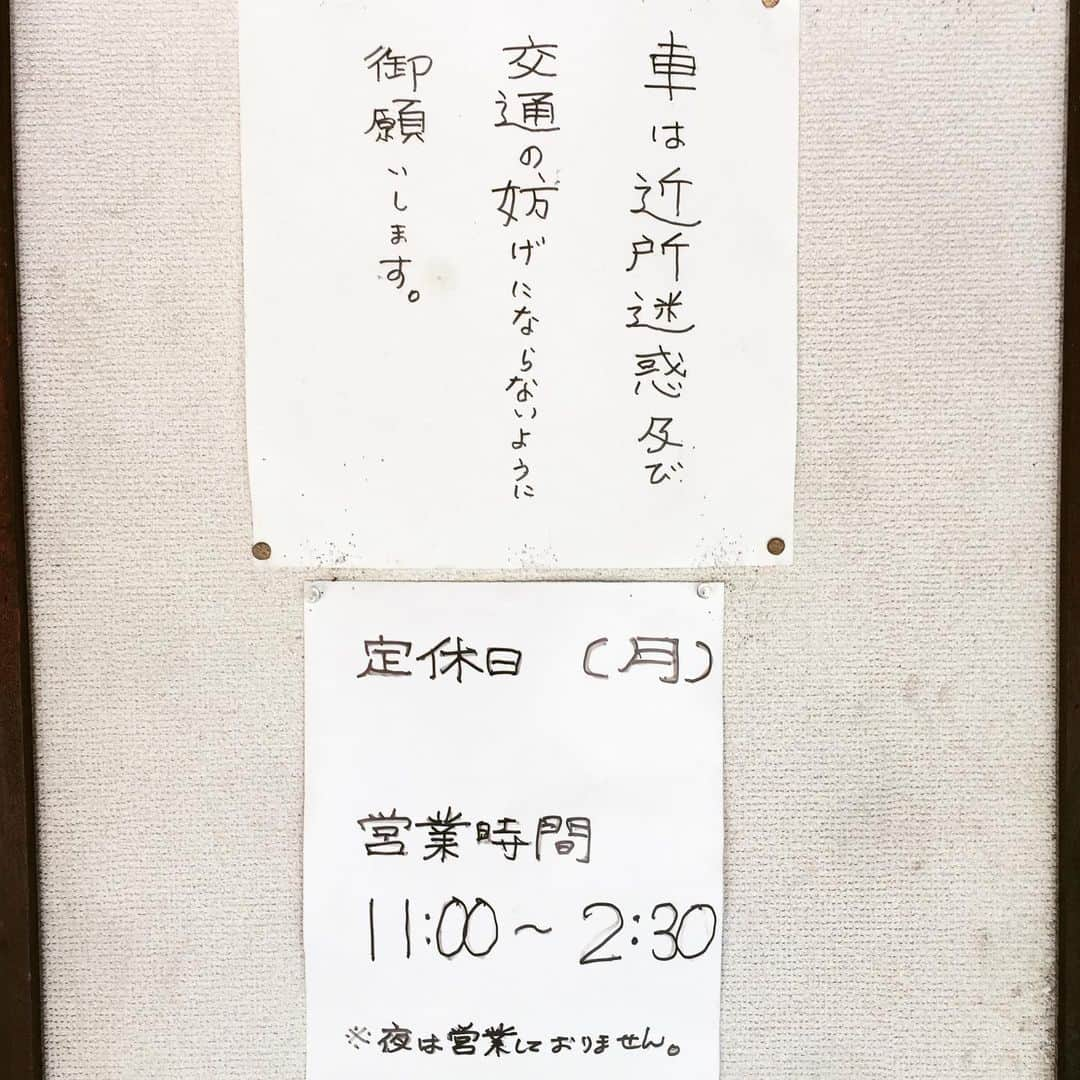 車は近所迷惑及び
交通の妨げにならないように
御願いします。
定休日 (月)
営業時間
11:00～2:30
※夜は営業しておりません。